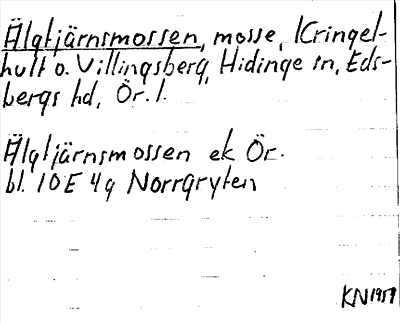 Älgtjärnsmossen, mosse, Kringel-
hult o. Villingsberg, Hidinge sn, Eds-
bergs hd, Ör. l.
Älgtjärnsmossen ek Ör.
bl. 10E 4g Norrgryten
KN1957